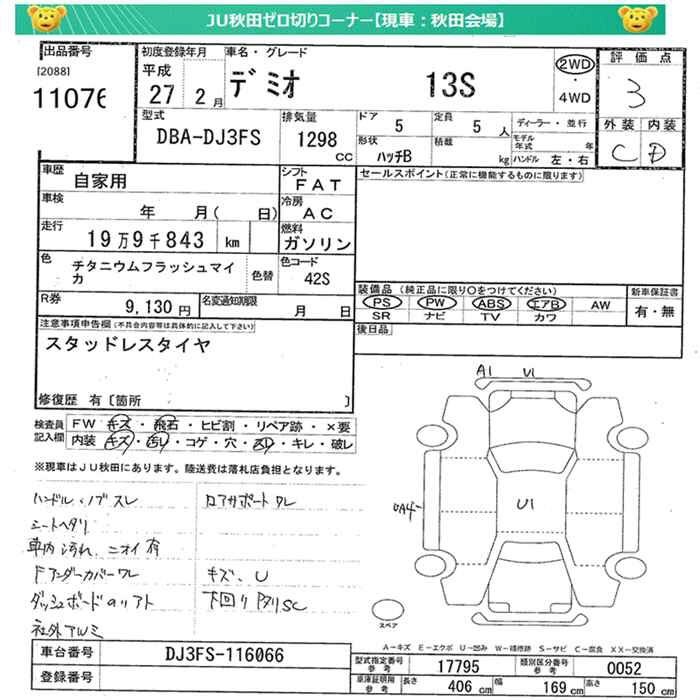 JU秋田ゼロ切りコーナー【現車：秋田会場】
出品番号
[2088]
11076
初度登録年月
平成
27 2月
車名・グレード
デミオ 13S
2WD
・
4WD
評価点
3
外装 内装
C D
型式
DBA-DJ3FS
排気量
1298
cc
ドア
5
定員
5人
ディーラー・並行
形状
ハッチB
積載
kg
モデル年式 年
ハンドル 左・右
車歴
自家用
シフト
FAT
車検
年 月( 日)
冷房
AC
走行
19万9千843 km
燃料
ガソリン
色
チタニウムフラッシュマイカ
色替
色コード
42S
R券
9,130円
名変通知期限
月 日
セールスポイント(正常に機能するものに限ります)
装備品 (純正品に限り○をつけてください)
PS PW ABS エアB AW
SR ナビ TV カワ
新車保証書
有・無
後日品
注意事項申告欄(不具合内容等は具体的に記入して下さい)
スタッドレスタイヤ
修復歴 有〔箇所 〕
検査員記入欄
FW キズ・飛石・ヒビ割・リペア跡・×要
内装 キズ・汚レ・コゲ・穴・スレ・キレ・破レ
※現車はJU秋田にあります。陸送費は落札店負担となります。
ハンドル・ノブスレ
シートヘタリ
車内汚れ、ニオイ有
Fアンダーカバーワレ
ダッシュボードのリアト
社外アルミ
ロアサポートワレ
キズ、U
下回りドリSC
A1 U1
U1
UA4
スペア
A－キズ E－エクボ U－凹み W－補修跡 S－サビ C－腐食 XX－交換済
車台番号
DJ3FS-116066
登録番号
型式指定番号
参考
17795
類別区分番号
参考
0052
車庫証明用
参考
長さ 406cm
幅 169cm
高さ 150cm